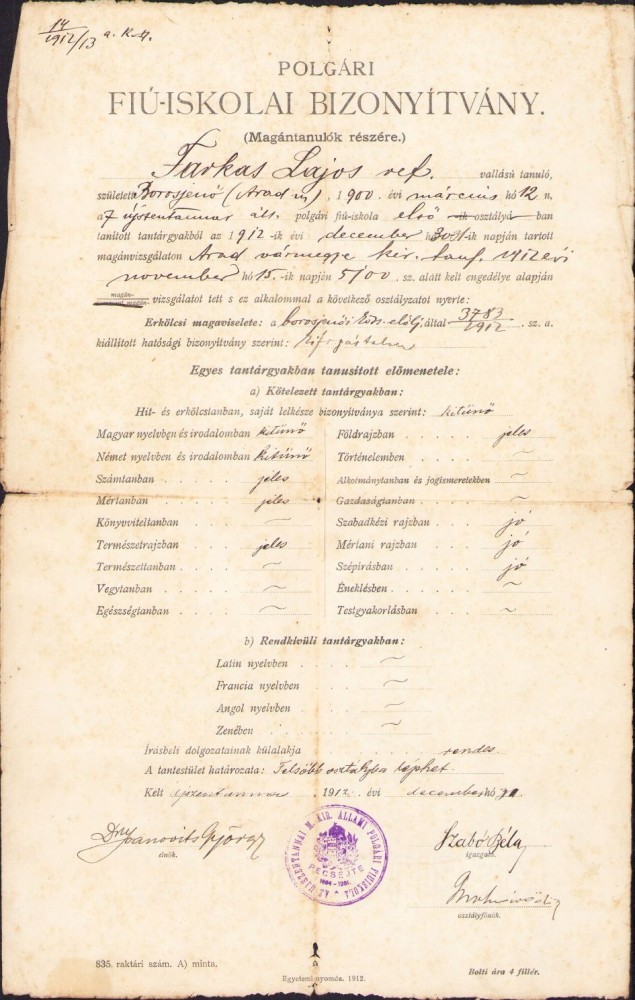 14
1912/13 a. K. M.
POLGÁRI
FIÚ-ISKOLAI BIZONYÍTVÁNY.
(Magántanulók részére.)
Farkas Lajos ref. vallású tanuló,
született Borosjenő (Arad m), 1900. évi március hó 12 n,
a újszentannai áll. polgári fiú-iskola első -ik osztályá-ban
tanított tantárgyakból az 1912-ik évi december hó 30 -ik napján tartott
magánvizsgálaton Arad vármegye kir. tanf. 1912 évi
november hó 15.-ik napján 5100. sz. alatt kelt engedélye alapján
magán-
vizsgálatot tett s ez alkalommal a következő osztályzatot nyerte:
Erkölcsi magaviselete: a borosjenői közs. elölj. által 3783/1912. sz. a.
kiállított hatósági bizonyítvány szerint: kifogástalan
Egyes tantárgyakban tanusított előmenetele:
a) Kötelezett tantárgyakban:
Hit- és erkölcstanban, saját lelkésze bizonyítványa szerint: kitünő
Magyar nyelvben és irodalomban kitünő
Német nyelvben és irodalomban kitünő
Számtanban . . . . jeles
Mértanban . . . . jeles
Könyvviteltanban . . . . ~
Természetrajzban . . . . jeles
Természettanban . . . . ~
Vegytanban . . . . ~
Egészségtanban . . . . ~
Földrajzban . . . . jeles
Történelemben . . . . ~
Alkotmánytanban és jogismeretekben ~
Gazdaságtanban . . . . ~
Szabadkézi rajzban . . . . jó
Mértani rajzban . . . . jó
Szépírásban . . . . jó
Éneklésben . . . . ~
Testgyakorlásban . . . . ~
b) Rendkívüli tantárgyakban:
Latin nyelvben . . . ~
Francia nyelvben . . . ~
Angol nyelvben . . . ~
Zenében . . . ~
Írásbeli dolgozatainak külalakja . . . rendes
A tantestület határozata: Felsőbb osztályba léphet.
Kelt Ujszentanna 1912. évi december hó
Dr Ivanovits György
elnök.
Szabó Béla
igazgató.
osztályfőnök.
AZ UJSZENTANNAI M. KIR. ÁLLAMI POLGÁRI FIUISKOLA
PECSÉTJE
835. raktári szám. A) minta.
Egyetemi nyomda. 1912.
Bolti ára 4 fillér.